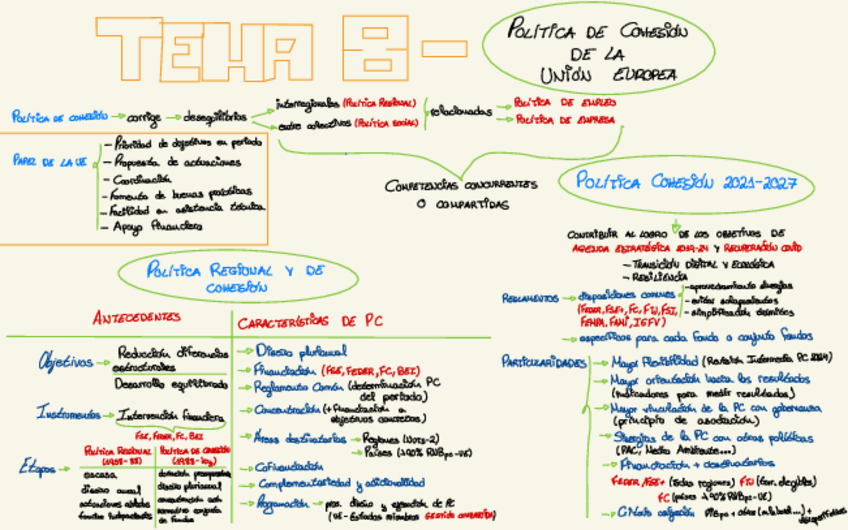 TEMA 8 -
POLÍTICA DE COHESIÓN
DE LA
UNIÓN EUROPEA
POLÍTICA DE COHESIÓN → corrige → desequilibrios
interregionales (POLÍTICA REGIONAL)
entre colectivos (POLÍTICA SOCIAL)
relacionadas
POLÍTICA DE EMPLEO
POLÍTICA DE EMPRESA
PAPEL DE LA UE
- Prioridad de objetivos en periodo
- Propuesta de actuaciones
- Coordinación
- Fomento de buenas prácticas
- Facilidad en asistencia técnica
- Apoyo financiero
COMPETENCIAS CONCURRENTES
O COMPARTIDAS
POLÍTICA COHESIÓN 2021-2027
CONTRIBUIR AL LOGRO DE LOS OBJETIVOS DE
AGENDA ESTRATÉGICA 2019-24 Y RECUPERACIÓN COVID
- TRANSICIÓN DIGITAL Y ECOLÓGICA
- RESILIENCIA
REGLAMENTOS → disposiciones comunes
(FEDER, FSE+, FC, FTJ, FSI,
FEMPA, FAMI, IGFV)
- aprovechamiento sinergias
- evitar solapamientos
- simplificación
→ específicos para cada fondo o conjunto fondos
PARTICULARIDADES
→ Mayor flexibilidad (Revisión Intermedia PC 2024)
→ Mayor orientación hacia los resultados
(indicadores para medir resultados)
→ Mayor vinculación de la PC con gobernanza
(principio de asociación)
→ Sinergias de la PC con otras políticas
(PAC, Medio Ambiente...)
→ Financiación + destinatarios
FEDER, FSE+ (todas regiones) FTJ (terr. elegibles)
FC (países <90% RNBpc-UE)
→ Criterio asignación PIBpc + otros
POLÍTICA REGIONAL Y DE
COHESIÓN
ANTECEDENTES
Objetivos → Reducción diferencias
estructurales
Desarrollo equilibrado
Instrumentos → Intervención financiera
FSE, FEDER, FC, BEI
Etapas
POLÍTICA REGIONAL
(1958-88)
escasa
diseño anual
actuaciones aisladas
fondos independientes
POLÍTICA DE COHESIÓN
(1988-hoy)
dotación presupuestaria
diseño plurianual
normativa conjunta
en fondos
CARACTERÍSTICAS DE PC
→ Diseño plurianual
→ Financiación (FSE, FEDER, FC, BEI)
→ Reglamento Común (determinación PC
del periodo)
→ Concentración (+ financiación a
objetivos concretos)
→ Áreas destinatarias → Regiones (NUTS-2)
→ Países (<90% RNBpc-UE)
→ Cofinanciación
→ Complementariedad y adicionalidad
→ Programación → prog. diseño y ejecución de PC
(UE-Estados miembros GESTIÓN COMPARTIDA)